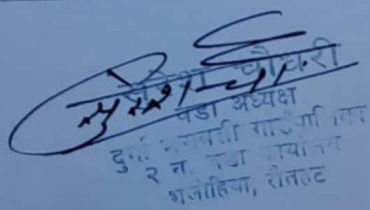 चौधरी
वडा अध्यक्ष
दुर्गा भगवती गाउँपालिका
२ नं. वडा कार्यालय
भलोहिया, रौतहट